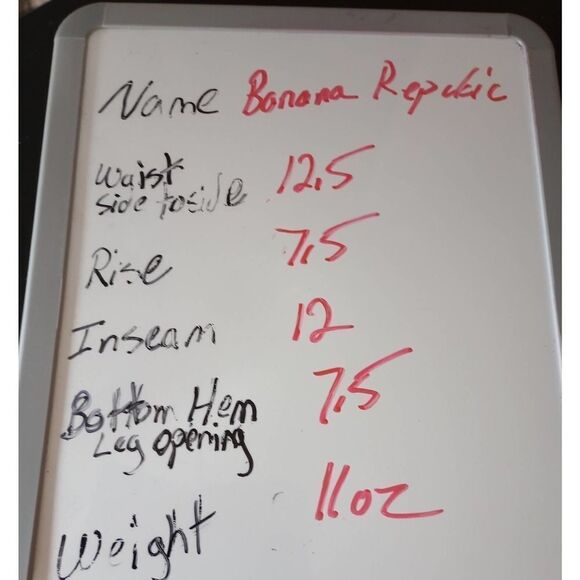 Name Banana Repulic
Waist 12.5
side to side
Rise 7.5
Inseam 12
Bottom Hem 7.5
Leg opening
Weight 11oz